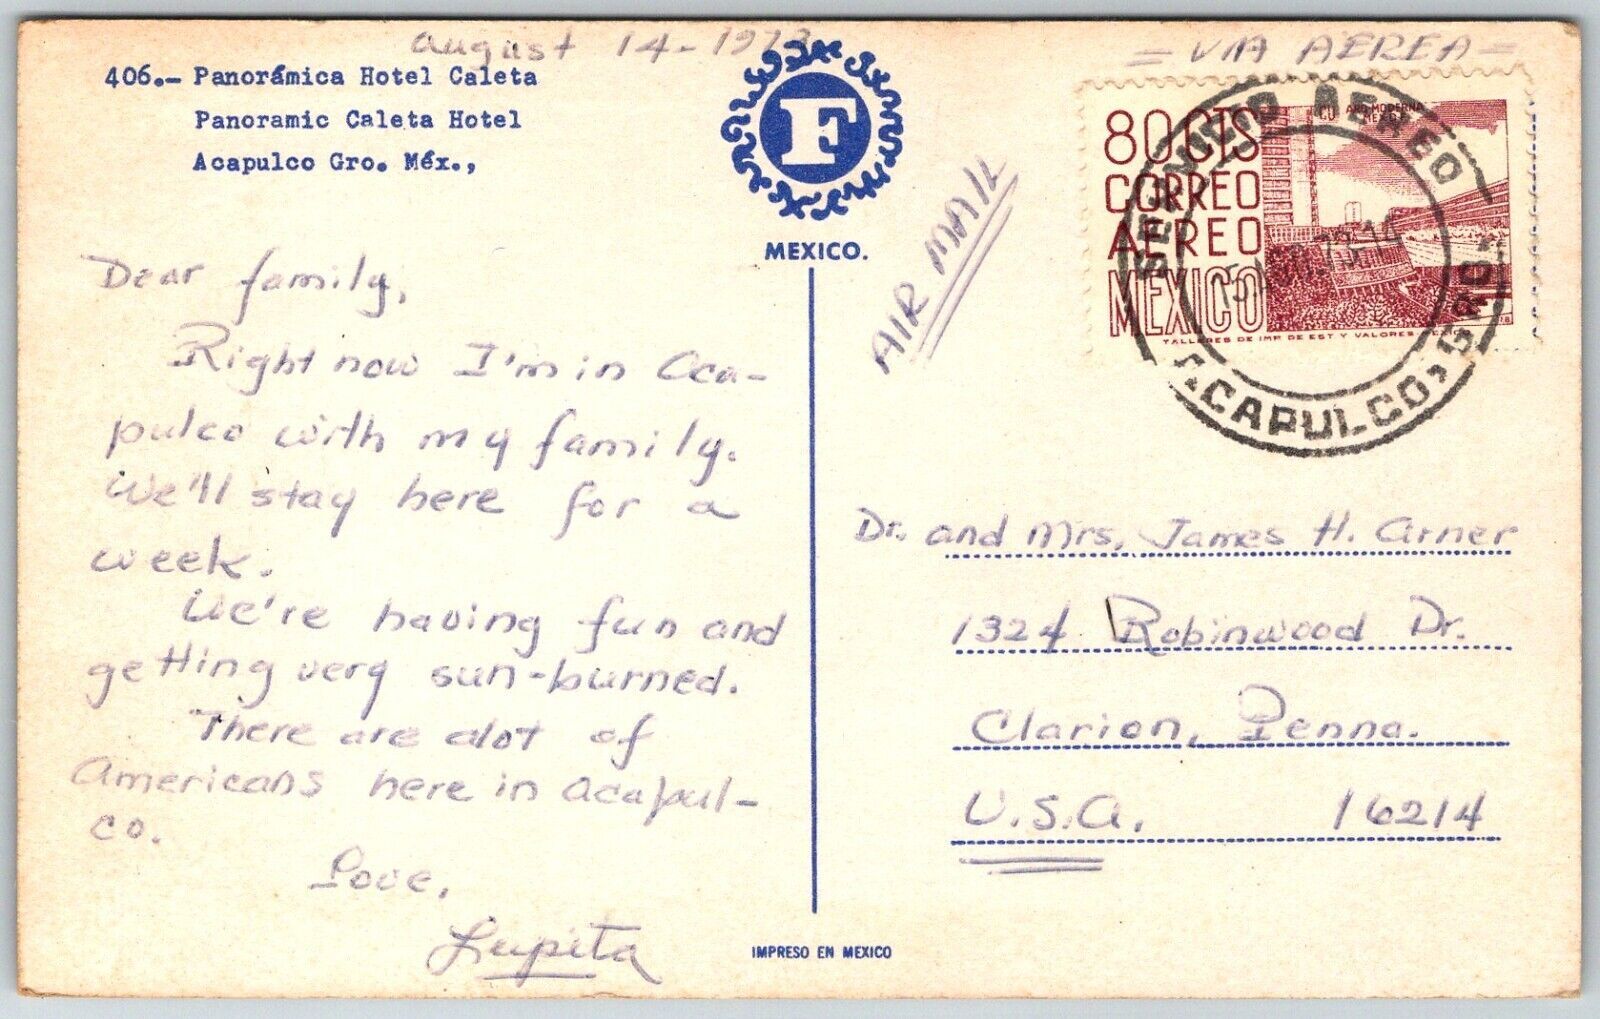 August 14-1973
406.— Panorámica Hotel Caleta
Panoramic Caleta Hotel
Acapulco Gro. Méx.,
F
MEXICO.
Dear family,
Right now I'm in Aca-
pulco with my family.
We'll stay here for a
week.
We're having fun and
getting very sun-burned.
There are alot of
Americans here in Acapul-
co.
Love,
Lupita
IMPRESO EN MEXICO
= VIA AEREA =
AIR MAIL
80 CTS
CORREO
AEREO
MEXICO
CU ARQ. MODERNA
MEXICO
TALLERES DE IMP. DE EST. Y VALORES
SERVICIO AEREO
15.AGO.73.14
ACAPULCO, GRO.
Dr. and Mrs, James H. Arner
1324 Robinwood Dr.
Clarion, Penna.
U.S.A. 16214